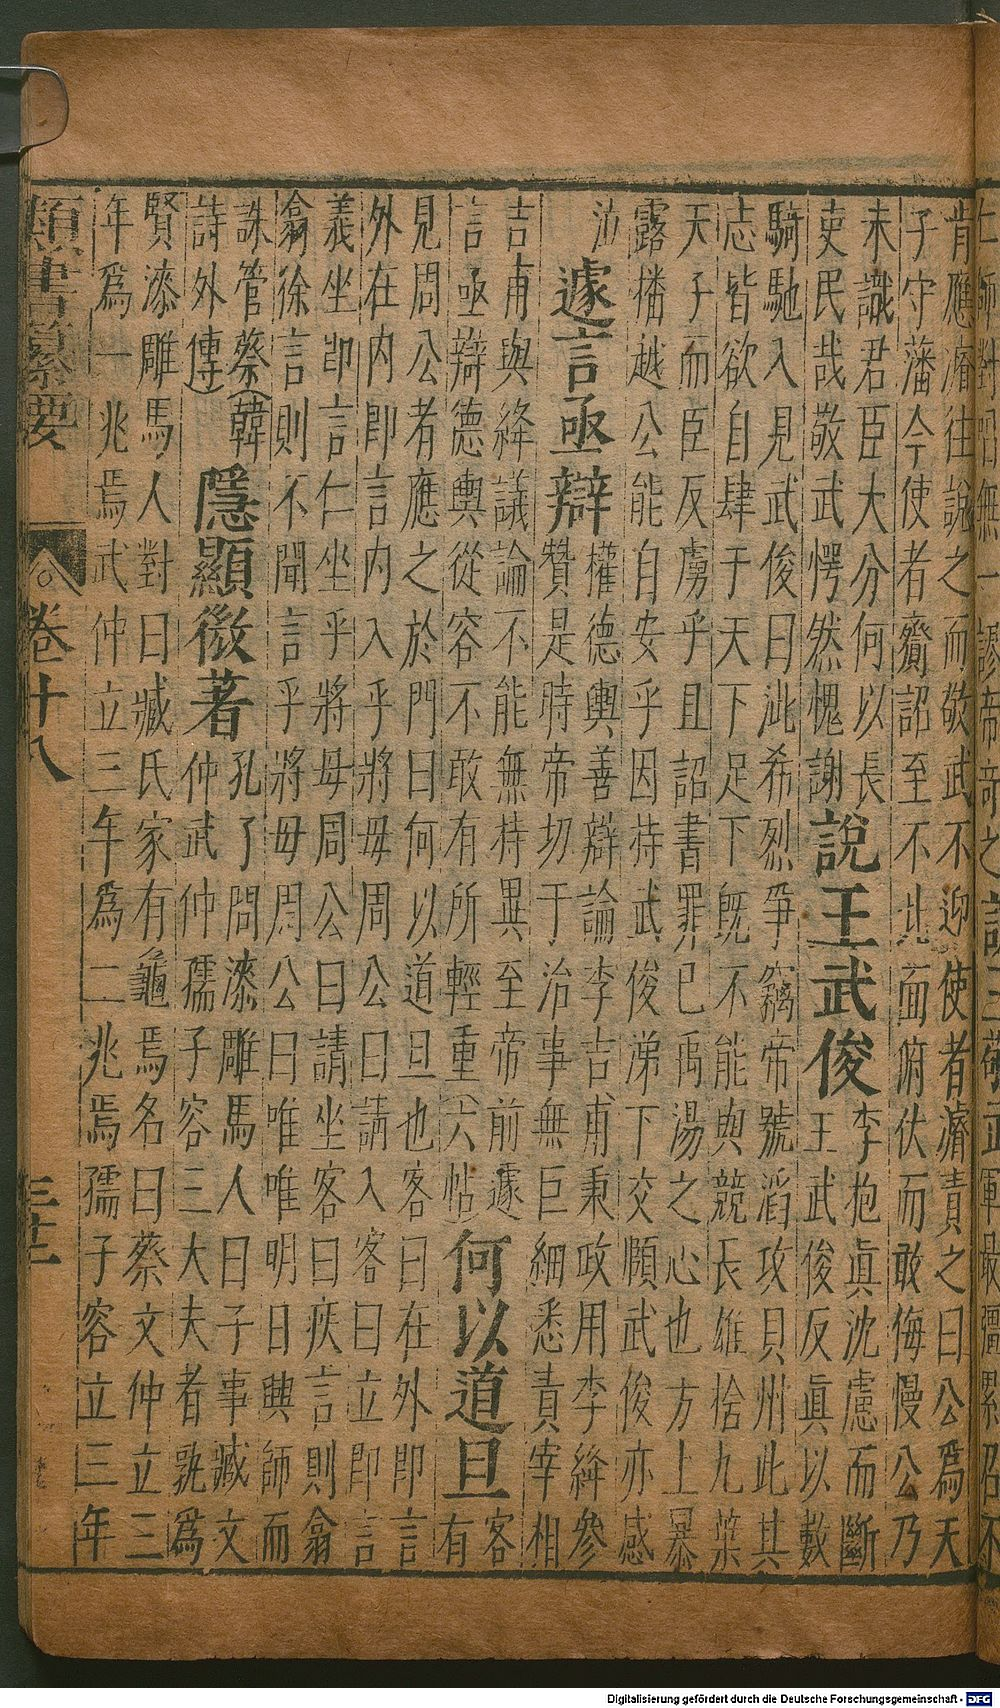 肯應濬往說之而敬武不迎使者濬責之曰公爲天
子守藩今使者齎詔至不北面俯伏而敢侮慢公乃
未識君臣大分何以長
吏民哉敬武愕然愧謝
說王武俊
李抱眞沈慮而斷
王武俊反眞以數
騎馳入見武俊曰泚希烈爭竊帝號滔攻貝州此其
志皆欲自肆于天下足下旣不能與競長雄捨九葉
天子而臣反虜乎且詔書罪已禹湯之心也方上暴
露播越公能自安乎因持武俊涕下交頤武俊亦感
泣
遽言亟辯
權德輿善辯論李吉甫秉政用李絳參
贊是時帝切于治事無巨細悉責宰相
吉甫與絳議論不能無持異至帝前遽
言亟辯德輿從容不敢有所輕重(六帖)
何以道旦
客
有
見周公者應之於門曰何以道旦也客曰在外卽言
外在內卽言內入乎將毋周公曰請入客曰立卽言
義坐卽言仁坐乎將毋周公曰請坐客曰疾言則翕
翕徐言則不聞言乎將毋周公曰唯唯明日興師而
誅管蔡(韓
詩外傳)
隱顯微著
孔子問漆雕馬人曰子事臧文
仲武仲孺子容三大夫者孰爲
賢漆雕馬人對曰臧氏家有龜焉名曰蔡文仲立三
年爲一兆焉武仲立三年爲二兆焉孺子容立三年
類書纂要
卷十八
Digitalisierung gefördert durch die Deutsche Forschungsgemeinschaft - DFG